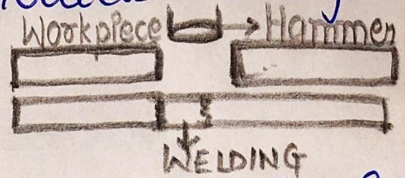 Workpiece Hammer
WELDING